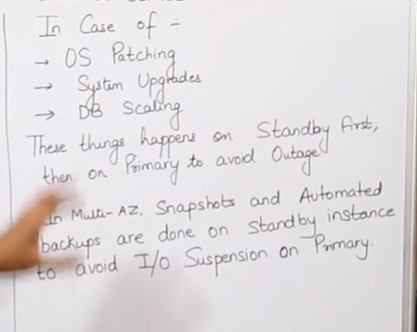 In Case of :-
→ OS Patching
→ System Upgrades
→ DB Scaling
These things happens on Standby first,
then on Primary to avoid Outage
In Multi-AZ, Snapshots and Automated
backups are done on standby instance
to avoid I/O Suspension on Primary.